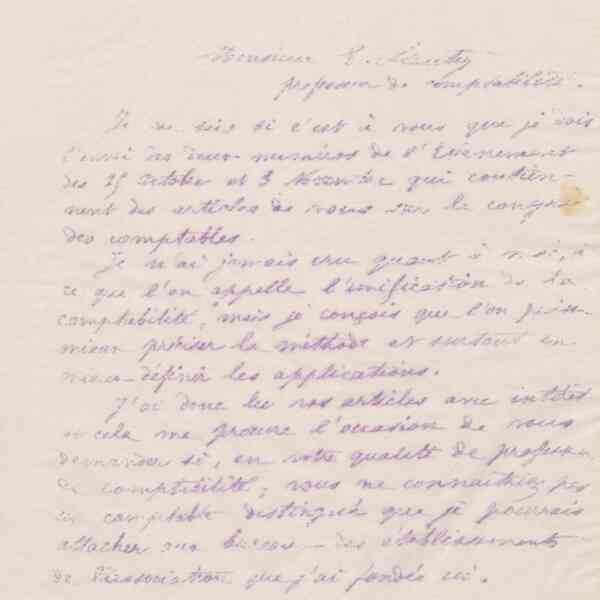 Monsieur L.
professeur de comptabilité.
Je ne sais si c'est à vous que je dois
l'envoi des deux numéros de l'Evènement
des 25 octobre et 3 Novembre qui contien-
nent des articles de vous sur le congrès
des comptables.
Je n'ai jamais cru quant à moi, à
ce que l'on appelle l'unification de la
comptabilité, mais je conçois que l'on puisse
mieux préciser la méthode et surtout en
mieux définir les applications.
J'ai donc lu vos articles avec intérêt
et cela me procure l'occasion de vous
demander si, en votre qualité de professeur
de comptabilité, vous ne connaîtriez pas
un comptable distingué que je pourrais
attacher aux bureaux des établissements
de l'association que j'ai fondée ici.